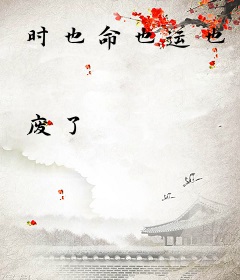 时也命也运也
废了